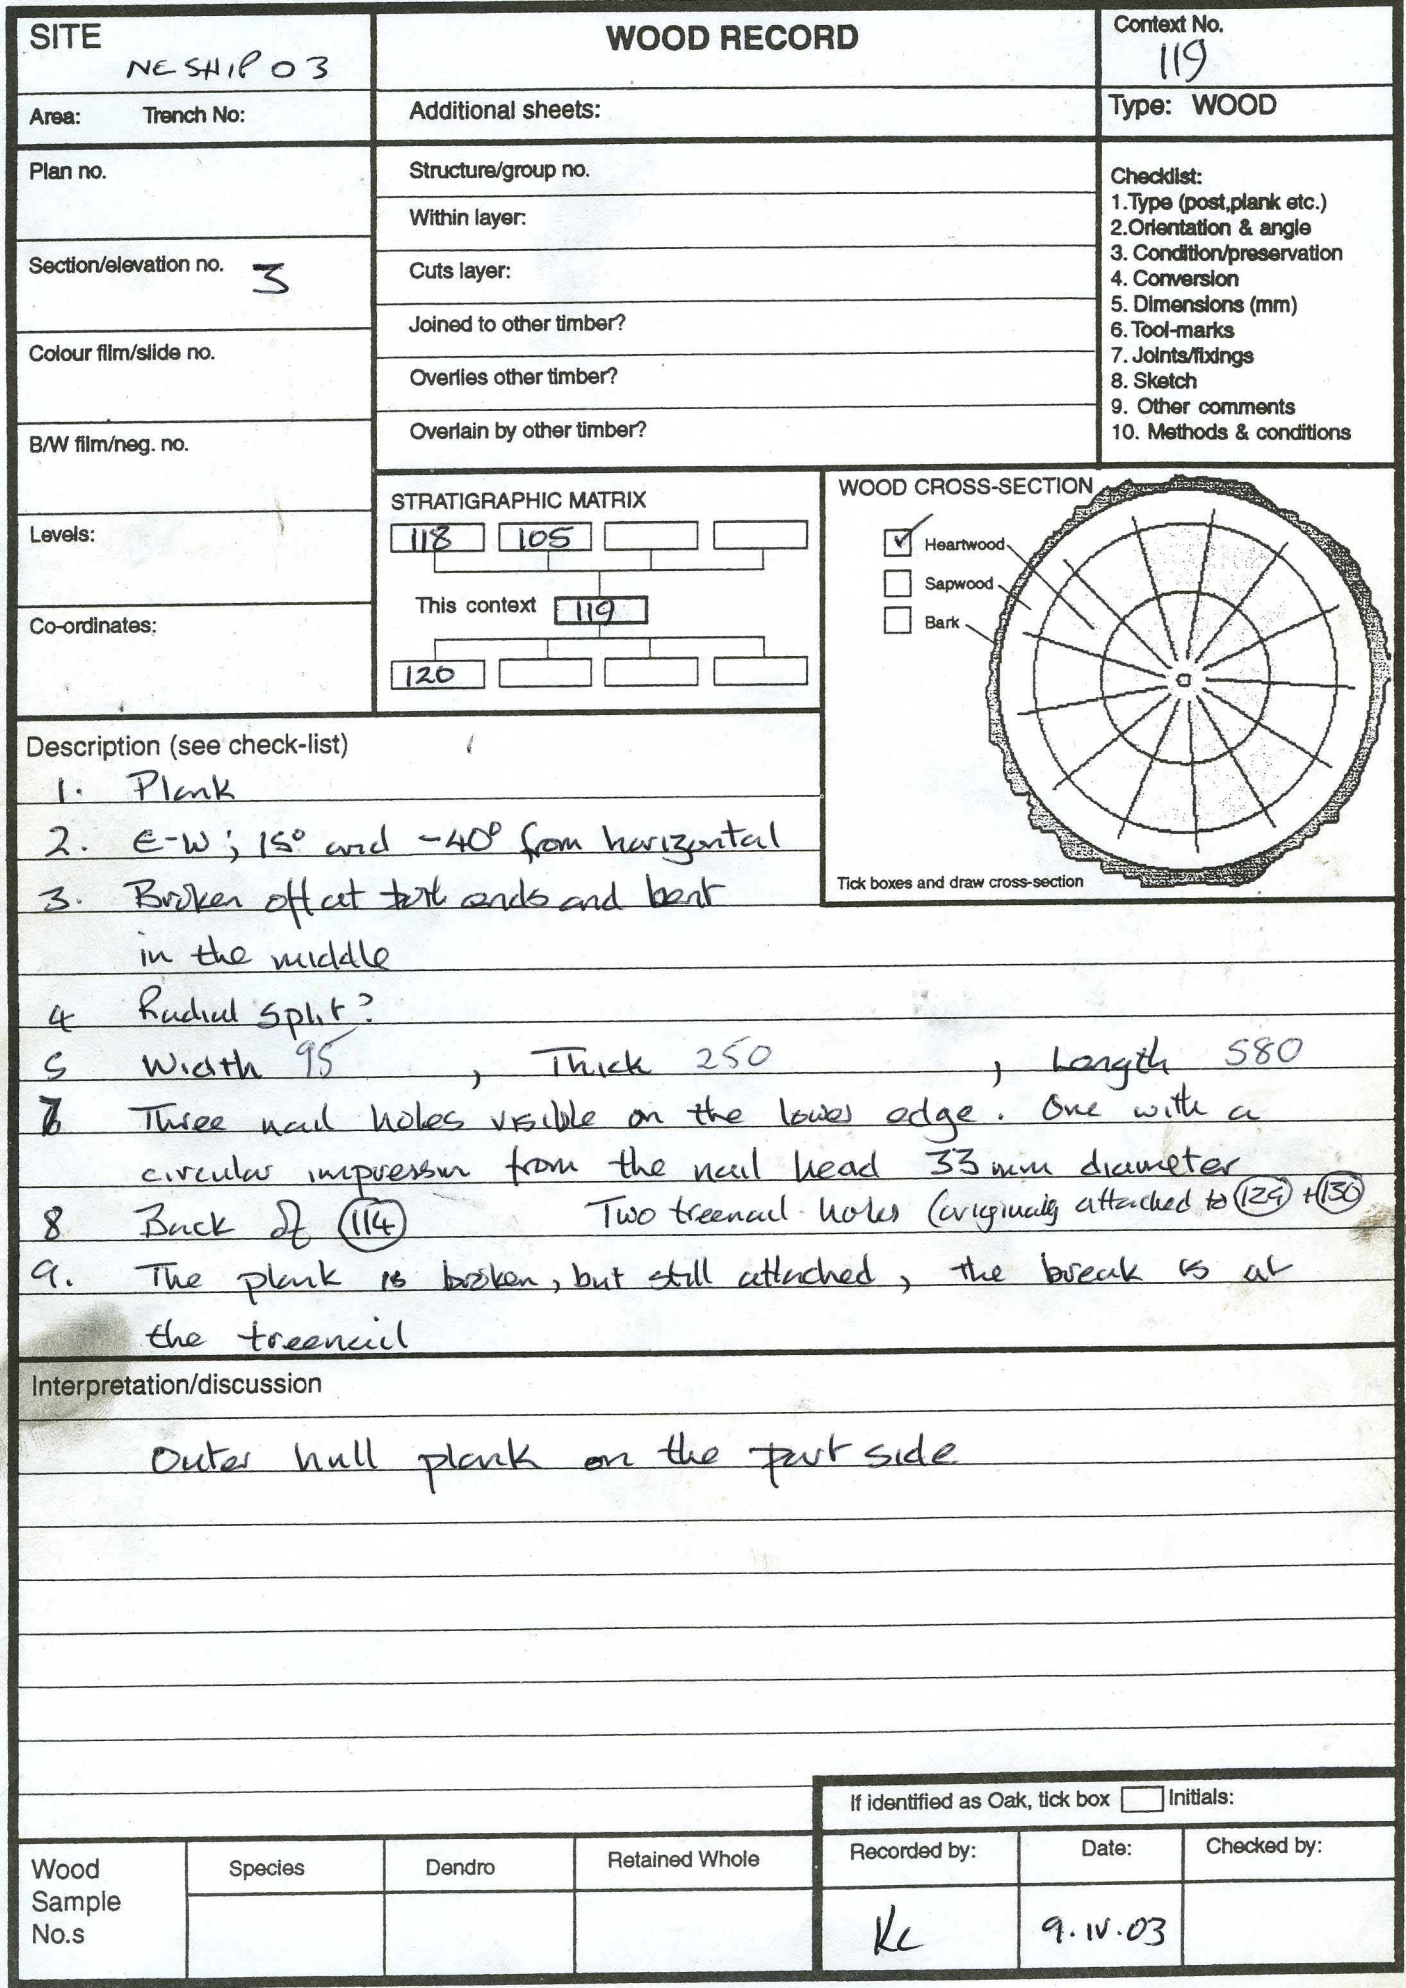 SITE
NESHIP 03
WOOD RECORD
Context No.
119
Area: Trench No:
Additional sheets:
Type: WOOD
Plan no.
Section/elevation no. 3
Colour film/slide no.
B/W film/neg. no.
Levels:
Co-ordinates:
Structure/group no.
Within layer:
Cuts layer:
Joined to other timber?
Overlies other timber?
Overlain by other timber?
Checklist:
1.Type (post,plank etc.)
2.Orientation & angle
3. Condition/preservation
4. Conversion
5. Dimensions (mm)
6. Tool-marks
7. Joints/fixings
8. Sketch
9. Other comments
10. Methods & conditions
STRATIGRAPHIC MATRIX
118 105
This context 119
120
WOOD CROSS-SECTION
✓ Heartwood
Sapwood
Bark
Tick boxes and draw cross-section
Description (see check-list)
1. Plank
2. E-W; 15° and -40° from horizontal
3. Broken off at both ends and bent
in the middle
4 Radial split?
5 Width 95 , Thick 250 , Length 580
7 Three nail holes visible on the lower edge. One with a
circular impression from the nail head 33mm diameter
8 Back of 114 Two treenail holes (originally attached to 129 + 130
9. The plank is broken, but still attached, the break is at
the treenail
Interpretation/discussion
Outer hull plank on the port side
If identified as Oak, tick box Initials:
Wood
Sample
No.s
Species
Dendro
Retained Whole
Recorded by:
KC
Date:
9.IV.03
Checked by: